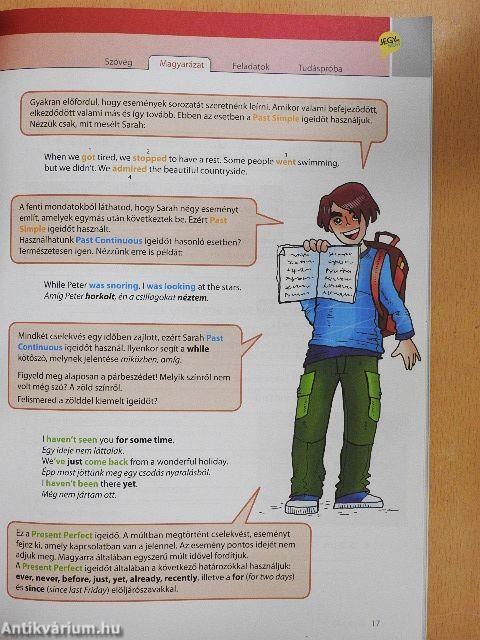 JEGY
Szöveg Magyarázat Feladatok Tudáspróba
Gyakran előfordul, hogy események sorozatát szeretnénk leírni. Amikor valami befejeződött,
elkezdődött valami más és így tovább. Ebben az esetben a Past Simple igeidőt használjuk.
Nézzük csak, mit mesélt Sarah:
1 2 3
When we got tired, we stopped to have a rest. Some people went swimming,
but we didn't. We admired the beautiful countryside.
4
A fenti mondatokból láthatod, hogy Sarah négy eseményt
említ, amelyek egymás után következtek be. Ezért Past
Simple igeidőt használt.
Használhatunk Past Continuous igeidőt hasonló esetben?
Természetesen igen. Nézzünk erre is példát:
While Peter was snoring, I was looking at the stars.
Amíg Peter horkolt, én a csillagokat néztem.
Mindkét cselekvés egy időben zajlott, ezért Sarah Past
Continuous igeidőt használ. Ilyenkor segít a while
kötőszó, melynek jelentése miközben, amíg.
Figyeld meg alaposan a párbeszédet! Melyik színről nem
volt még szó? A zöld színről.
Felismered a zölddel kiemelt igeidőt?
I haven't seen you for some time.
Egy ideje nem láttalak.
We've just come back from a wonderful holiday.
Épp most jöttünk meg egy csodás nyaralásból.
I haven't been there yet.
Még nem jártam ott.
Ez a Present Perfect igeidő. A múltban megtörtént cselekvést, eseményt
fejez ki, amely kapcsolatban van a jelennel. Az esemény pontos idejét nem
adjuk meg. Magyarra általában egyszerű múlt idővel fordítjuk.
A Present Perfect igeidőt általában a következő határozókkal használjuk:
ever, never, before, just, yet, already, recently, illetve a for (for two days)
és since (since last Friday) elöljárószavakkal.
17
Antikvárium.hu